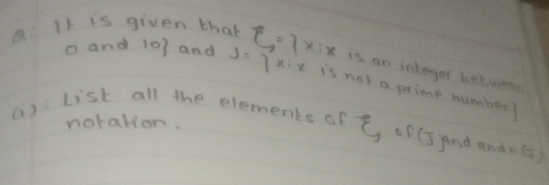 Q: It is given that ξ = {x:x is an integer between
0 and 10} and J = {x:x is not a prime number}
(i): List all the elements of ξ of (J) and and n(J)
notation.